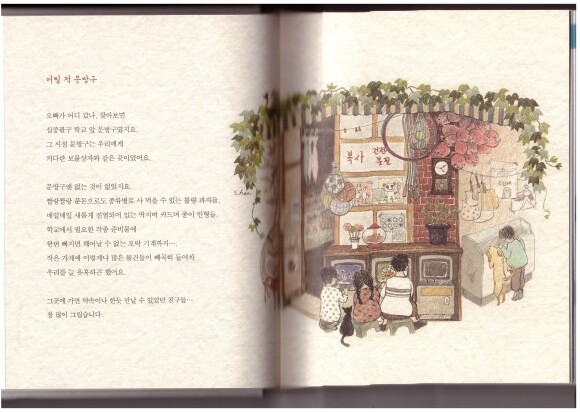 어릴 적 문방구
오빠가 어디 갔나, 찾아보면
십중팔구 학교 앞 문방구였지요.
그 시절 문방구는 우리에게
커다란 보물상자와 같은 곳이었어요.
문방구엔 없는 것이 없었지요.
짤랑짤랑 푼돈으로도 종류별로 사 먹을 수 있는 불량 과자들,
매일매일 새롭게 진열되어 있는 딱지며 카드며 종이 인형들.
학교에서 필요한 각종 준비물에
한번 빠지면 헤어날 수 없는 오락 기계까지…,
작은 가게에 이렇게나 많은 물건들이 빼곡히 들어차
우리를 늘 유혹하곤 했어요.
그곳에 가면 약속이나 한듯 만날 수 있었던 친구들…
참 많이 그립습니다.
복사
건전지